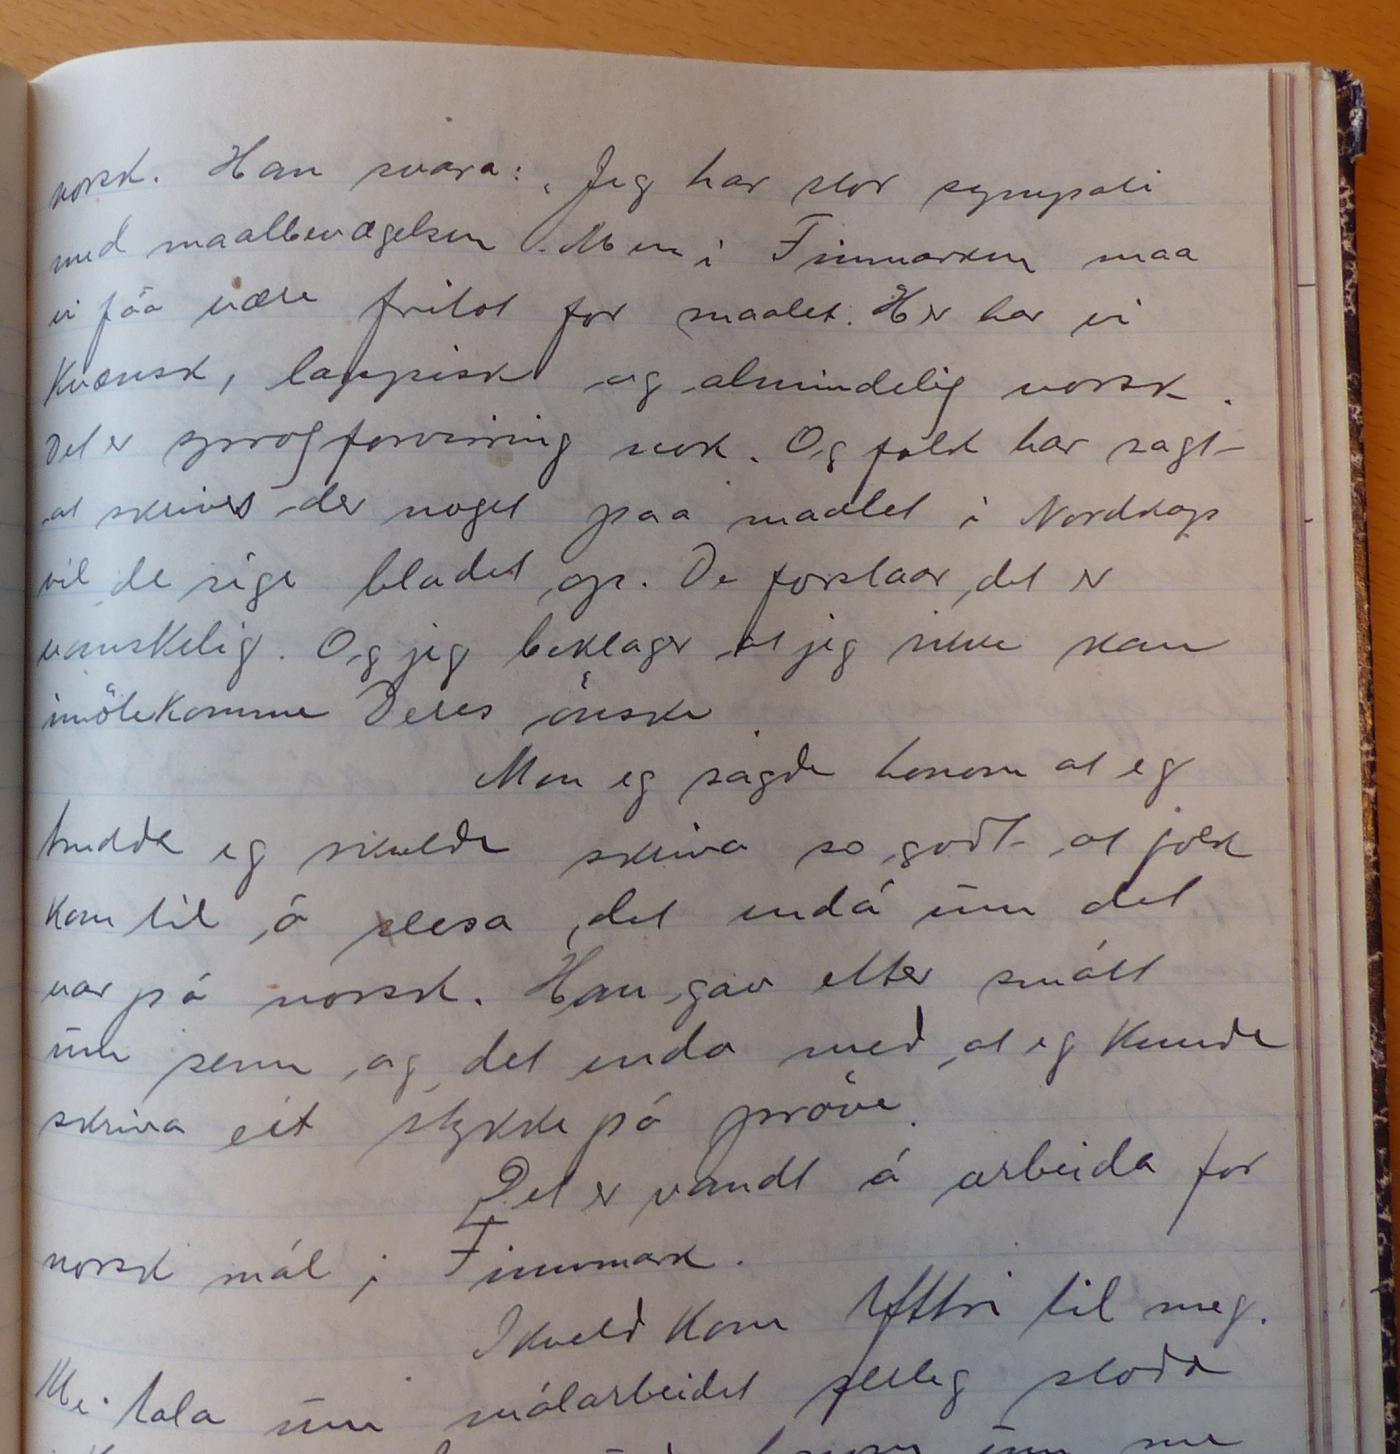 norsk. Han svara: „Jeg har stor sympati
med maalbevægelsen. Men i Finmarken maa
vi fåa være fritat for maalet. Her har vi
Kvænsk, lappisk og almindelig norsk.
Det er sprogforvirring nok. Og folk har sagt
at skrives der noget paa maalet i Nordkap
vil de sige bladet op. De forstaar det er
vanskelig. Og jeg beklager at jeg ikke kan
imötekomme Deres önske
Men eg sagde honom at eg
trudde eg skulde skriva so godt at folk
kom til å lesa det endå um det
var på norsk. Han gav etter smått
um senn, og det enda med at eg kunde
skriva eit stykke på pröve.
Det er vandt å arbeida for
norsk mål i Finnmark.
Ikveld kom Yttri til meg.
Me tala um målarbeidet stoda
um me